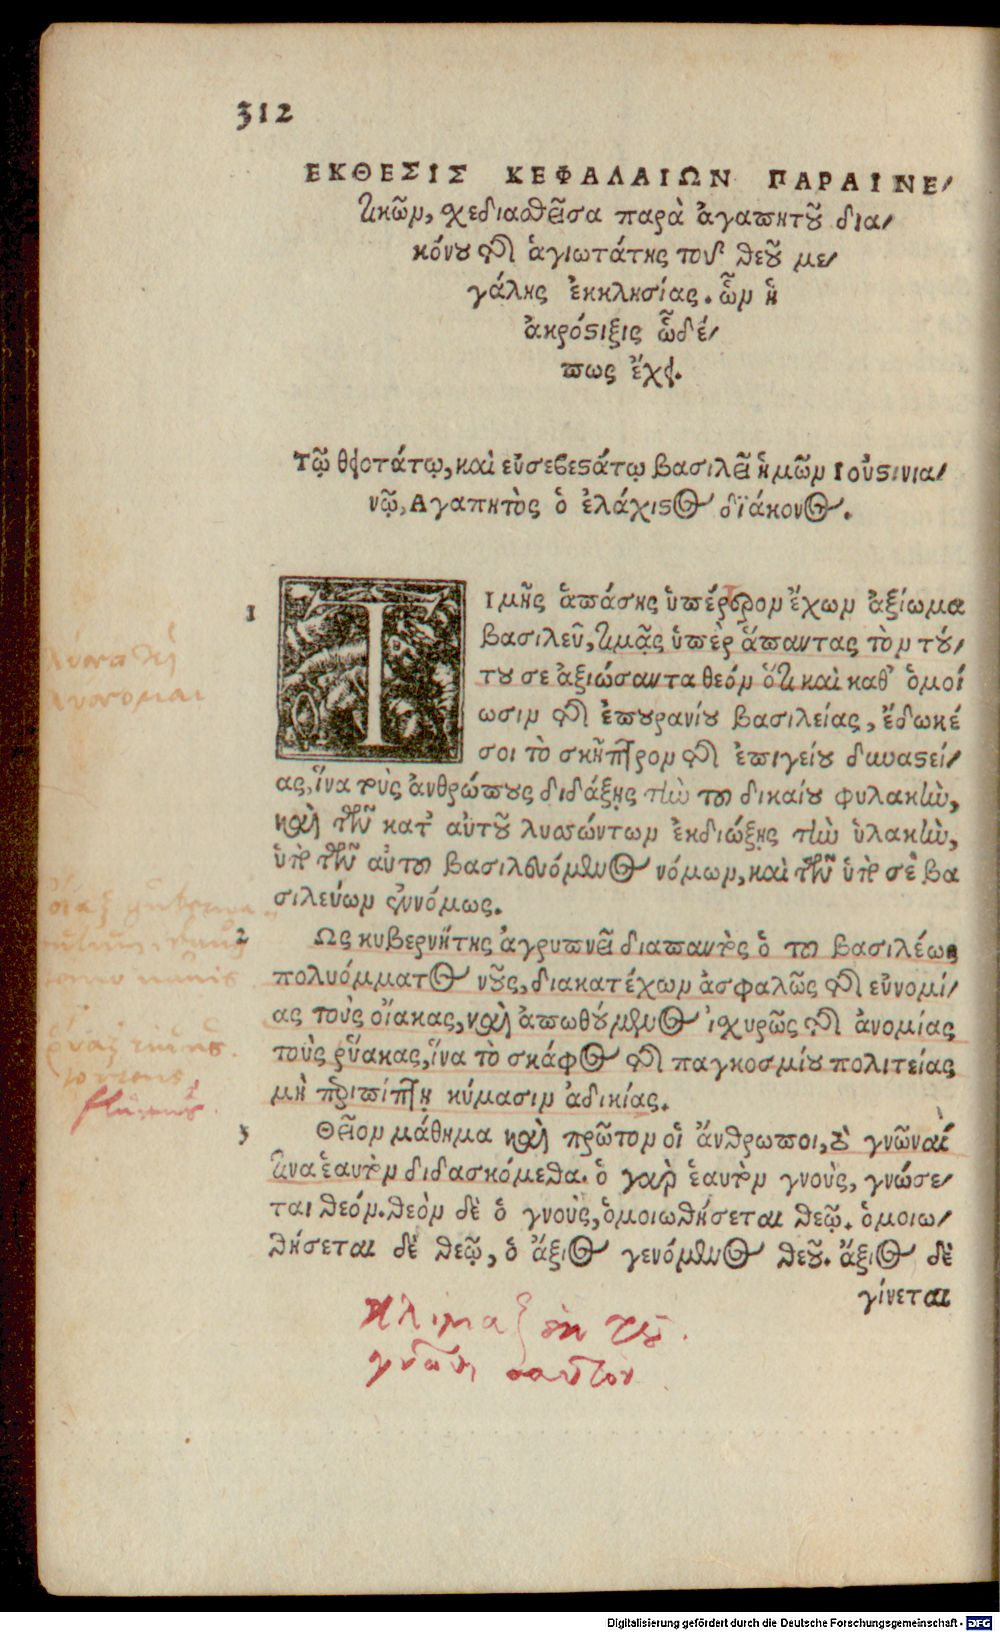 312
ΕΚΘΕΣΙΣ ΚΕΦΑΛΑΙΩΝ ΠΑΡΑΙΝΕ/
τικῶν, σχεδιασθεῖσα παρὰ ἀγαπητοῦ δια/
κόνου τῆς ἁγιωτάτης τοῦ θεοῦ με/
γάλης ἐκκλησίας. ὧν ἡ
ἀκρόστιξις ὧδέ/
πως ἔχει.
Τῷ θειοτάτῳ, καὶ εὐσεβεστάτῳ βασιλεῖ ἡμῶν Ἰουστινια/
νῷ, Ἀγαπητὸς ὁ ἐλάχιστος διάκονος.
1
ΤΙμῆς ἁπάσης ὑπέρτερον ἔχων ἀξίωμα
βασιλεῦ, τιμᾷς ὑπὲρ ἅπαντας τὸν τού/
του σε ἀξιώσαντα θεόν ὅτι καὶ καθ' ὁμοί
ωσιν τῆς ἐπουρανίου βασιλείας, ἔδωκέ
σοι τὸ σκῆπτρον τῆς ἐπιγείου δυναστεί/
ας, ἵνα τοὺς ἀνθρώπους διδάξῃς τὴν τοῦ δικαίου φυλακὴν,
καὶ τῶν κατ' αὐτοῦ λυσσώντων ἐκδιώξῃς τὴν ὑλακὴν,
ὑπὸ τῶν αὐτοῦ βασιλευόμενος νόμων, καὶ τῶν ὑπὸ σὲ βα
σιλεύων ἐννόμως.
2
Ως κυβερνήτης ἀγρυπνεῖ διαπαντὸς ὁ τοῦ βασιλέως
πολυόμματος νοῦς, διακατέχων ἀσφαλῶς τῆς εὐνομί/
ας τοὺς οἴακας, καὶ ἀπωθούμενος ἰσχυρῶς τῆς ἀνομίας
τοὺς ῥύακας, ἵνα τὸ σκάφος τῆς παγκοσμίου πολιτείας
μὴ περιπίπτῃ κύμασιν ἀδικίας.
3
Θεῖον μάθημα καὶ πρῶτον οἱ ἄνθρωποι, τὸ γνῶναί
τινα ἑαυτὸν διδασκόμεθα. ὁ γὰρ ἑαυτὸν γνοὺς, γνώσε/
ται θεόν. θεὸν δὲ ὁ γνοὺς, ὁμοιωθήσεται θεῷ. ὁμοιω/
θήσεται δὲ θεῷ, ὁ ἄξιος γενόμενος θεοῦ. ἄξιος δὲ
γίνεται
κλίμαξ ἐκ τοῦ
γνῶθι σαυτόν